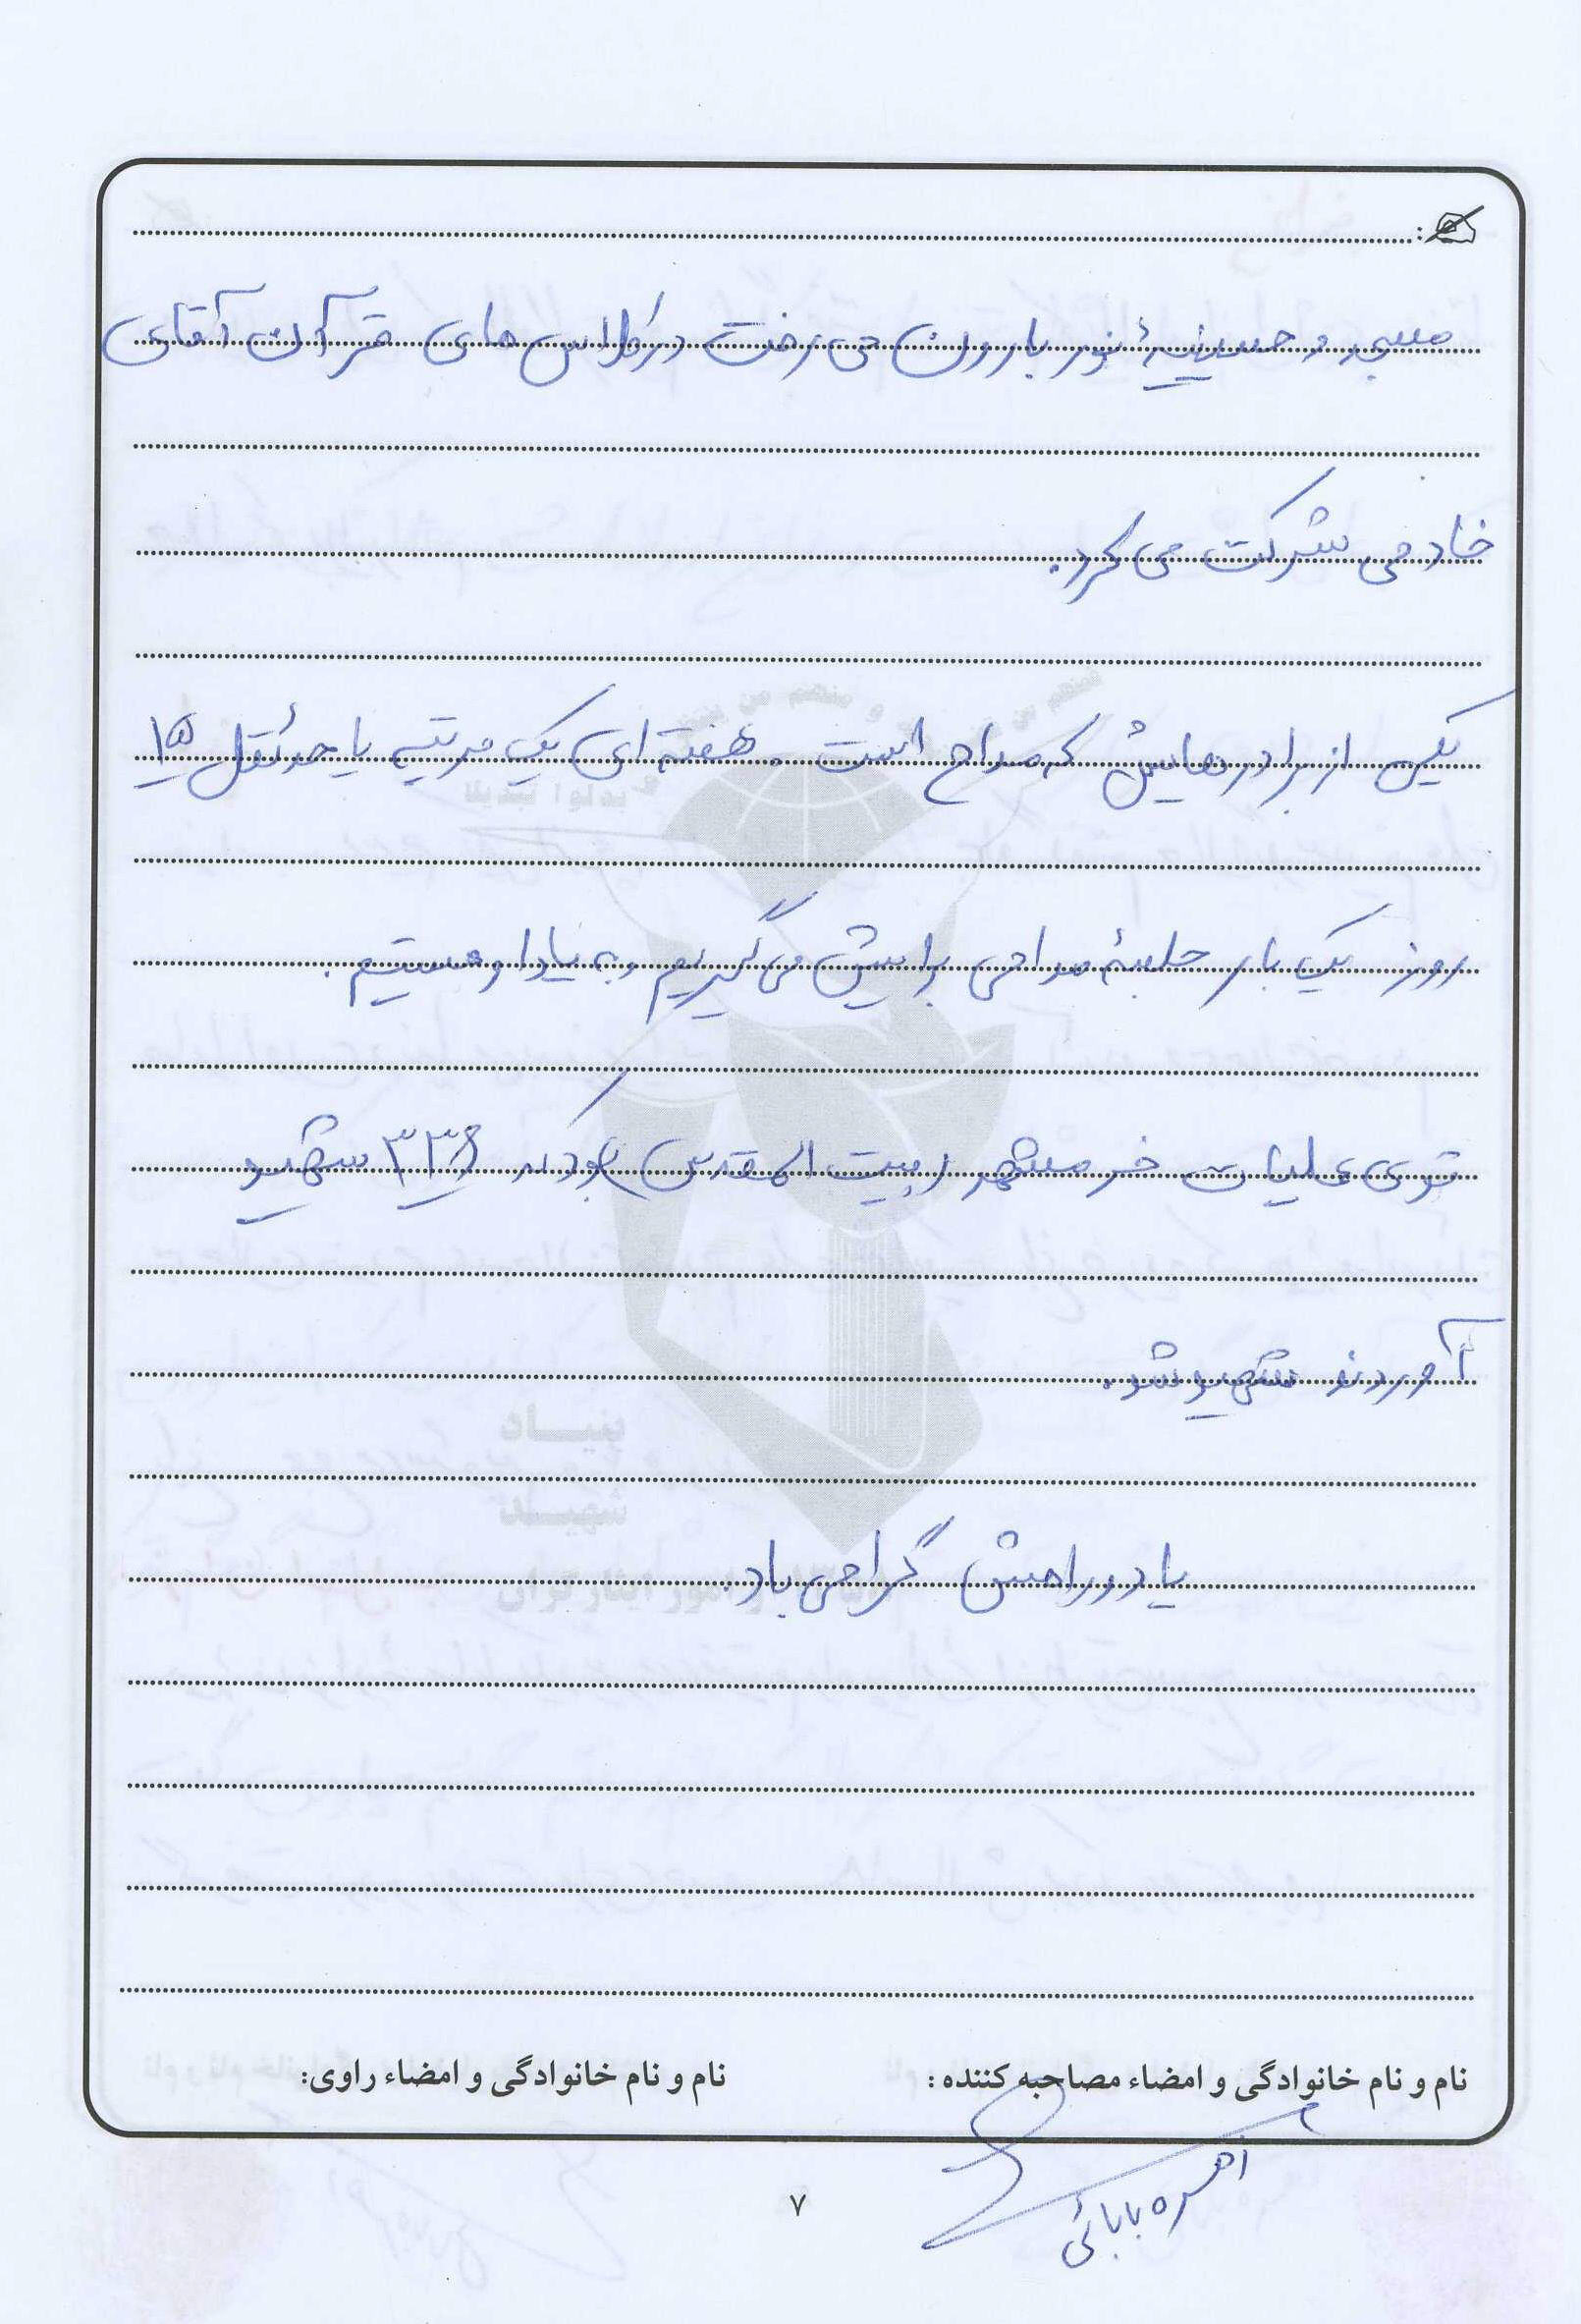 مسجد و حسینیهٔ نور بارون می رفت در کلاس های قرآن آقای
خادمی شرکت می کرد.
یکی از برادرهایش که مداح است . هفته ای یک مرتبه یا حدئقل ۱۵
روز یک بار جلسهٔ مداحی برایش می گیریم و به یاد او هستیم .
توی عملیات خرمشهر (بیت المقدس) بود که ۳۳۶ شهید
آوردند شهید شد .
یاد و راهش گرامی باد.
بنیاد
شهید
و امور ایثارگران
نام و نام خانوادگی و امضاء مصاحبه کننده :
نام و نام خانوادگی و امضاء راوی:
بابائی
۷